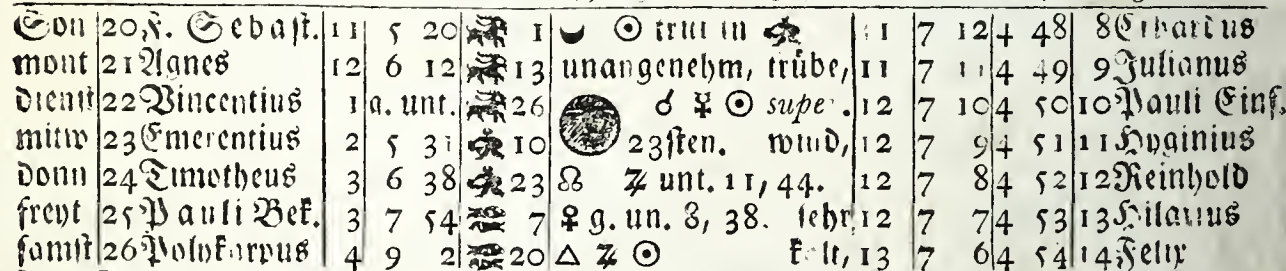 Son 20 F. Sebast. 11 5 20 1 ☽ ☉ tritt in 11 7 12 4 48 8 Erhartus
mont 21 Agnes 12 6 12 13 unangenehm, trübe, 11 7 11 4 49 9 Julianus
dienst 22 Vincentius 1 g. unt. 26 ☌ ☿ ☉ supe. 12 7 10 4 50 10 Pauli Eins.
mitw 23 Emerentius 2 5 31 10 23sten. wind, 12 7 9 4 51 11 Hyginius
donn 24 Timotheus 3 6 38 23 ☊ ♃ unt. 11, 44. 12 7 8 4 52 12 Reinhold
freyt 25 Pauli Bek. 3 7 54 7 ♀ g. un. 8, 38. sehr 12 7 7 4 53 13 Hilarius
samst 26 Polykarpus 4 9 2 20 △ ♃ ☉ kalt, 13 7 6 4 54 14 Felix